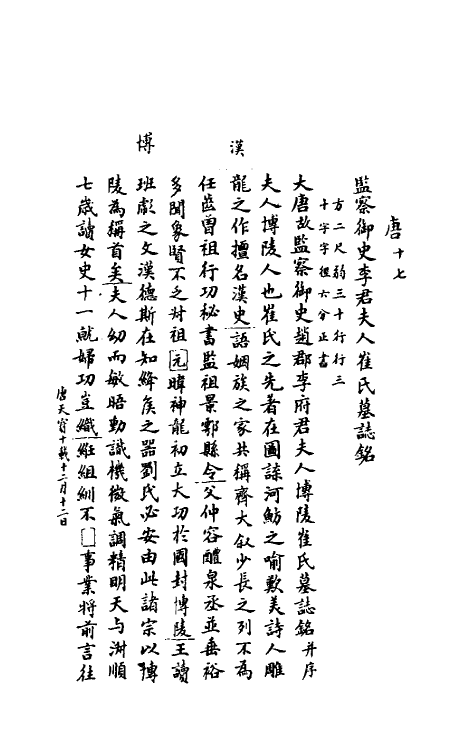 唐十七
監察御史李君夫人崔氏墓誌銘
方二尺弱三十行行三
十字字徑六分正書
大唐故監察御史趙郡李府君夫人博陵崔氏墓誌銘并序
夫人博陵人也崔氏之先著在圖諜河魴之喻歎美詩人雕
漢
龍之作擅名漢史語姻族之家共稱齊大叙少長之列不為
任齒曽祖行功秘書監祖景鄠縣令父仲容醴泉丞並垂裕
多聞象賢不乏封祖元暐神龍初立大功於國封博陵王讀
博
班彪之文漢德斯在知絳矦之器劉氏必安由此諸宗以博
陵為稱首矣夫人幼而敏晤動識機微氣調精明天与淑順
七歲讀女史十一就婦功豈織絍組紃不事業將前言往
唐天寶十載十二月十二日